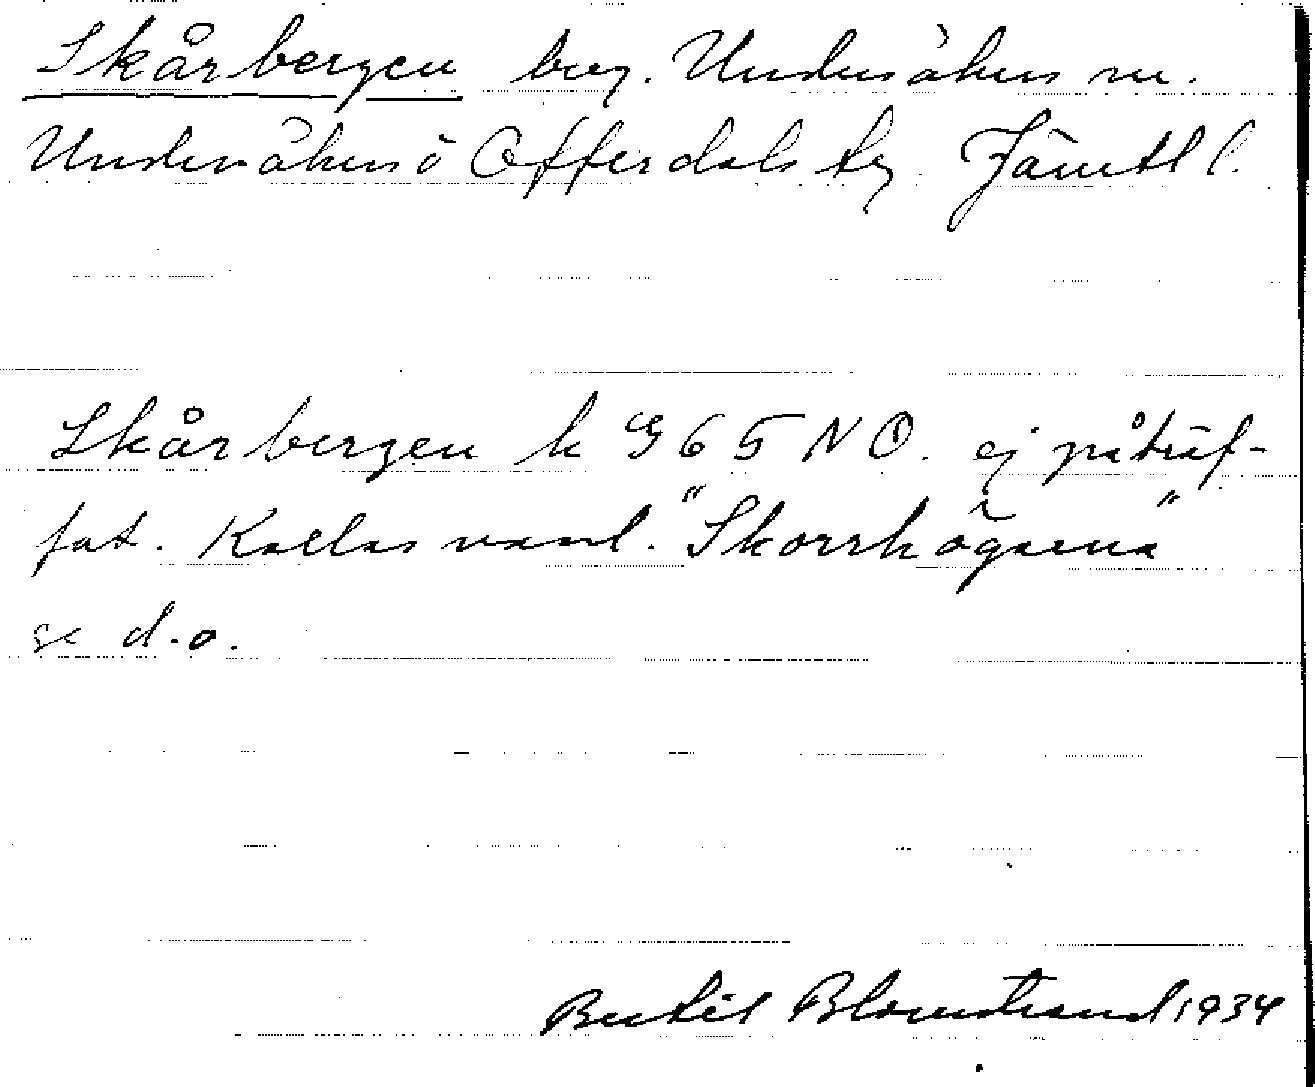 Skårbergen berg. Undersåkers sn.
Undersåkers o Offerdals tg. Jämtl l.
Skårbergen k G 65 NO. ej påträf-
fat. Kallas vanl. "Skorrhögarna"
se d.o.
Bertil Blomstrand 1934